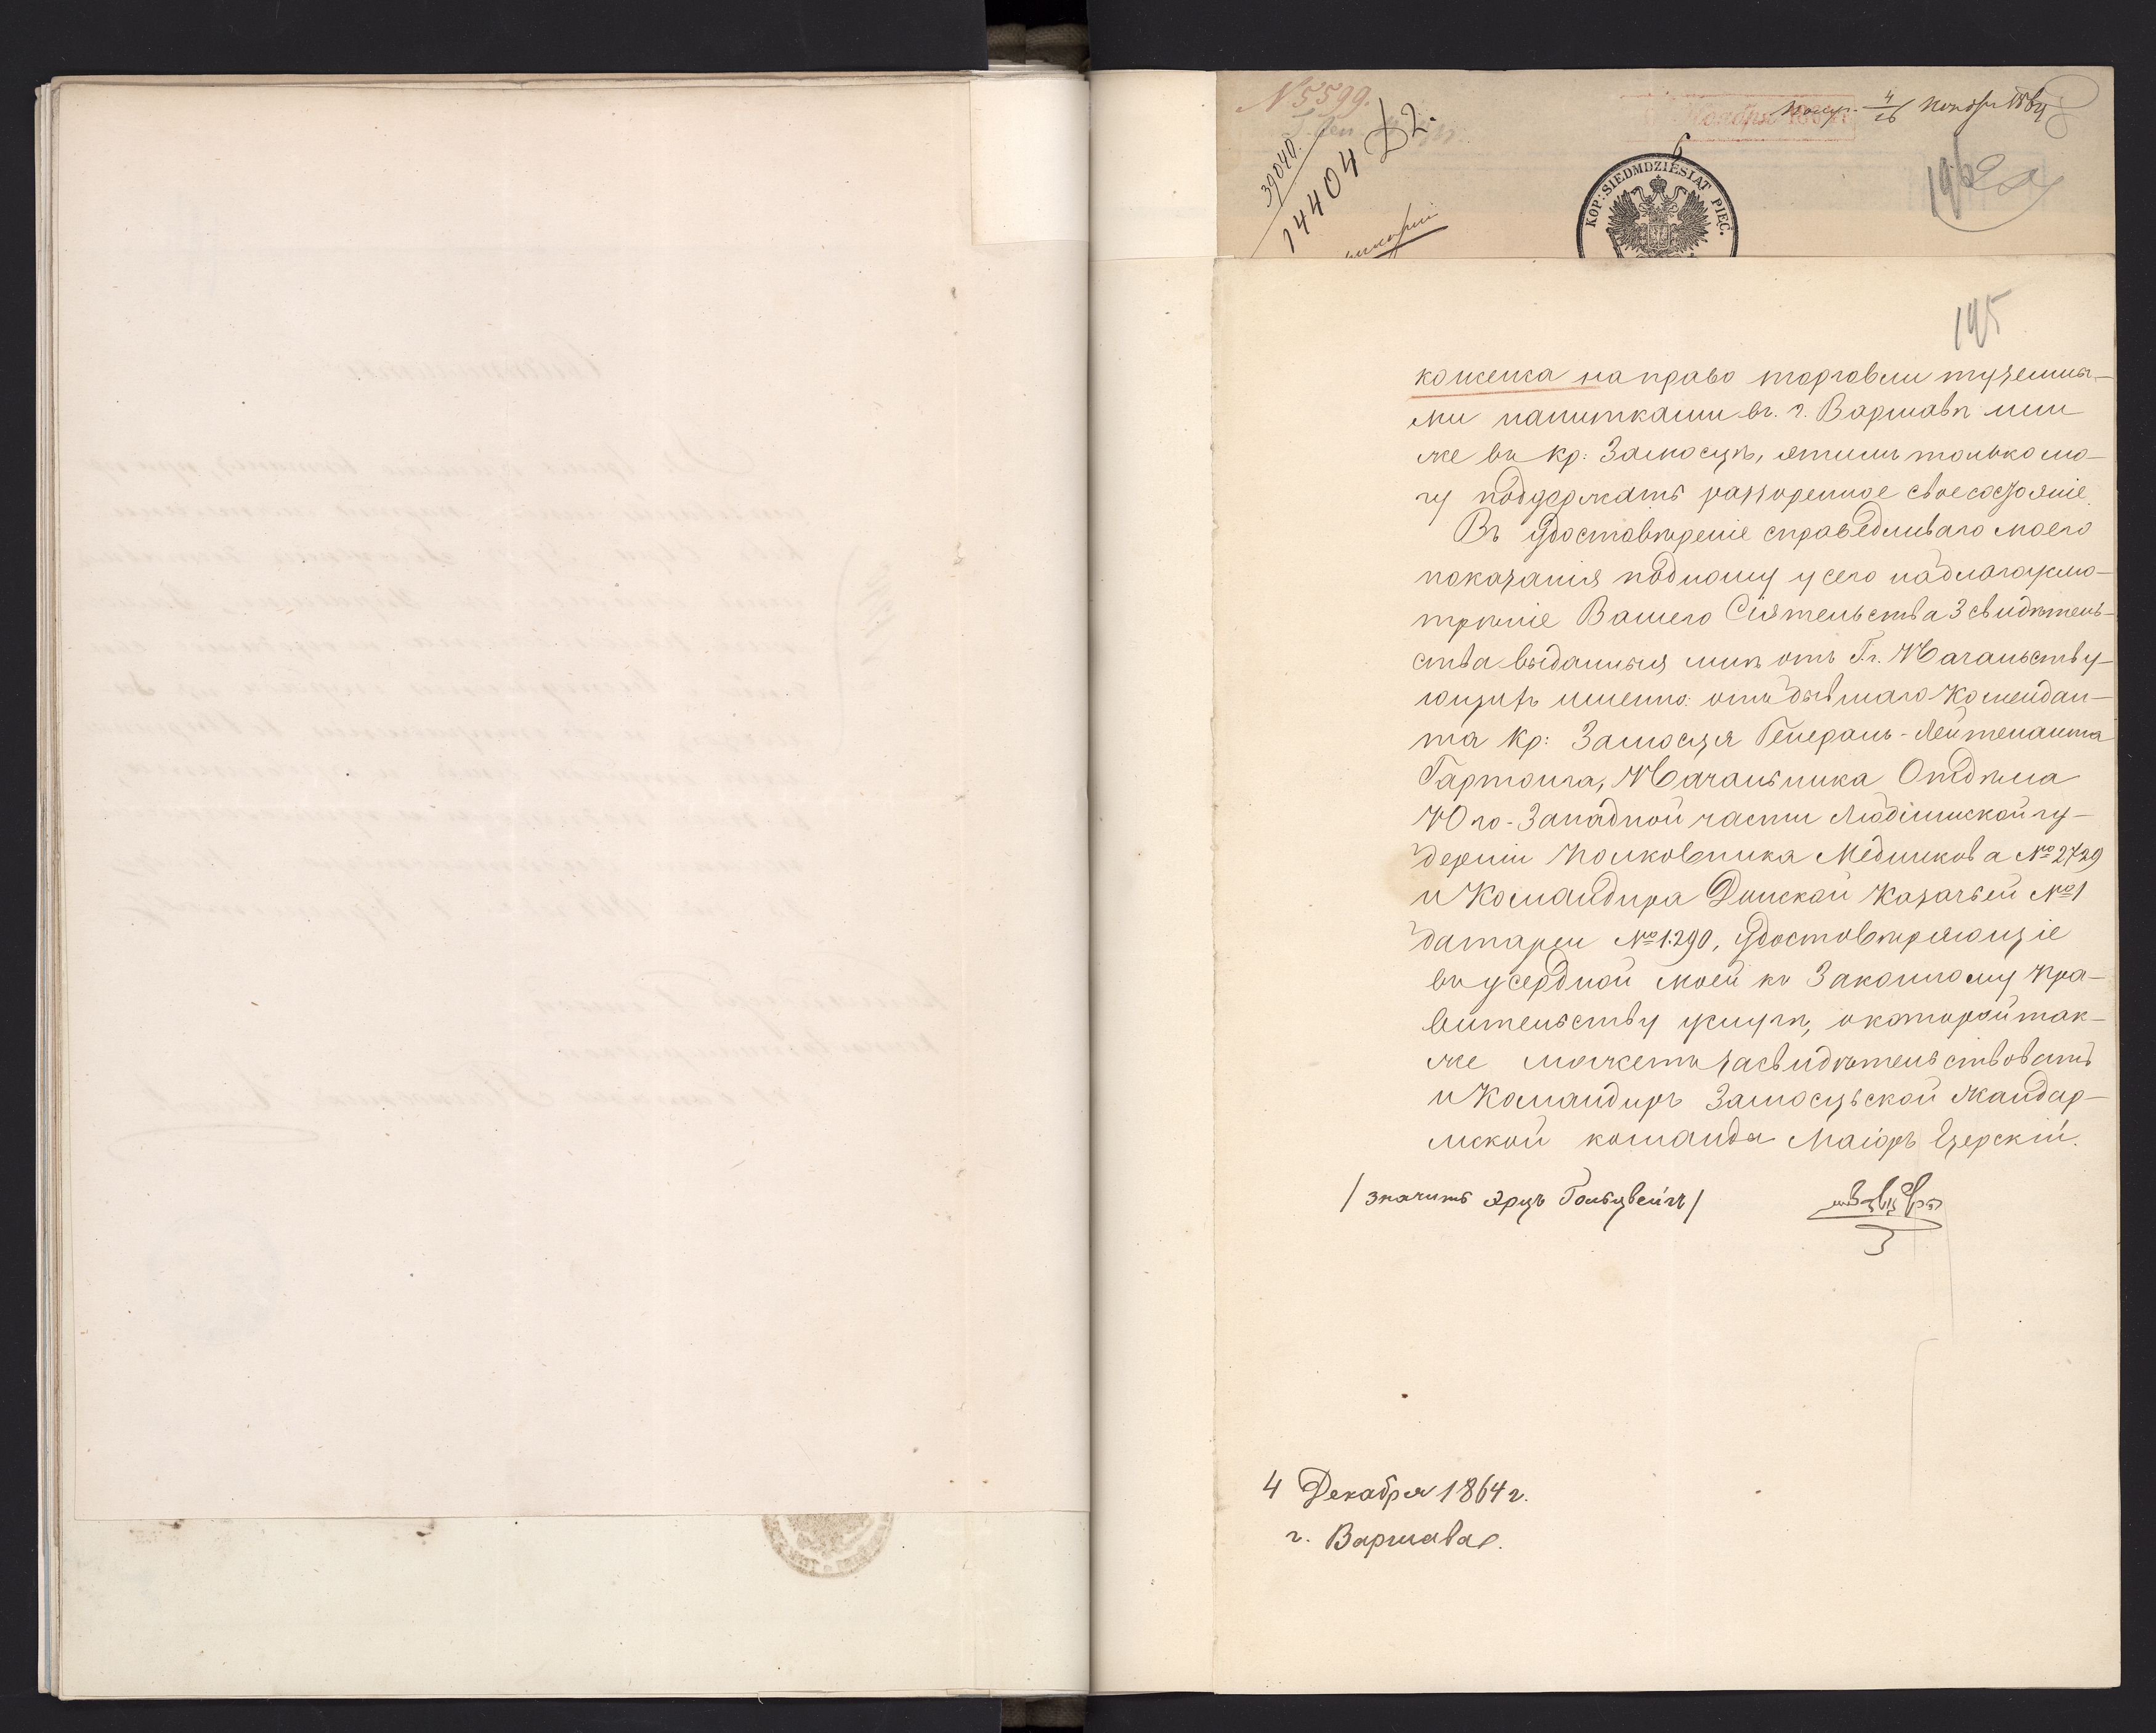 № 5599.
39040.
14404 D2.
Ноября 4/16 Ноября 1864
KOP: SIEDMDZIESIAT PIĘĆ.
196
195
консенса на право торговли туземны-
ми напитками въ г. Варшавѣ или
же въ кр: Замосцѣ, этимъ только мо-
гу поддержать разоренное свое состояніе.
Въ удостовѣреніе справедливаго моего
показанія подношу у сего на благоусмо-
трѣніе Вашего Сіятельства 3 свидѣтель-
ства выданныя мнѣ отъ Гг. Началству-
ющихъ именно: отъ бывшаго Комендан-
та Кр: Замосця Генералъ-Лейтенанта
Гартонга, Начальника Отдѣла
Юго-Западной части Люблинской гу-
берніи Полковника Медникова № 2729
и Командира Донской Казачьей № 1
батареи № 1.290, удостовѣряющіе
въ усердной моей къ Законному Пра-
вительству услугѣ, о которой так-
же можетъ засвидѣтельствовать
и Командиръ Замосцьской жандар-
мской команды Маіоръ Церскій.
/ значитъ Эрцъ Гольцвейгъ /
4 Декабря 1864 г.
г. Варшава.